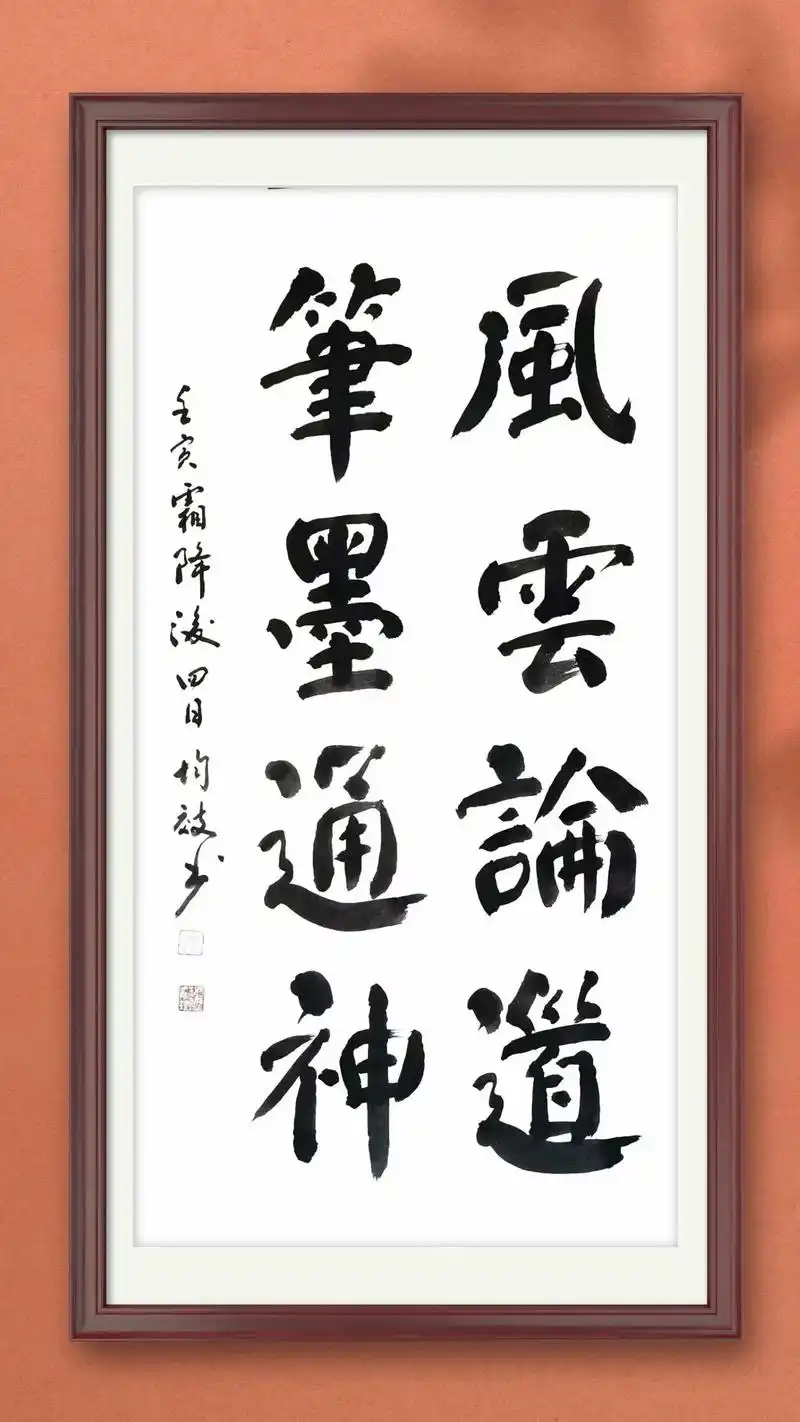 風雲論道
筆墨通神
壬寅霜降後四日均效书